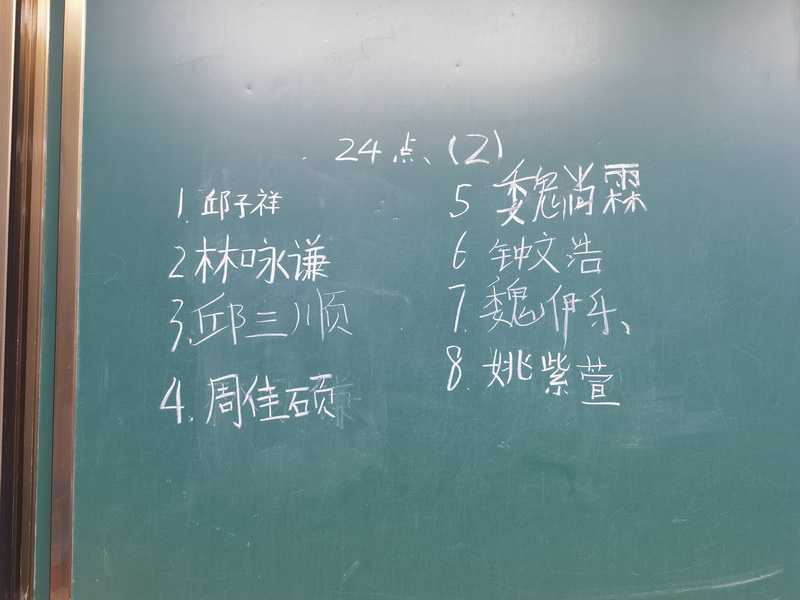 24点(2)
1.邱子祥
2林咏谦
3.邱三顺
4.周佳硕
5魏尚霖
6钟文浩
7.魏伊乐
8.姚紫萱